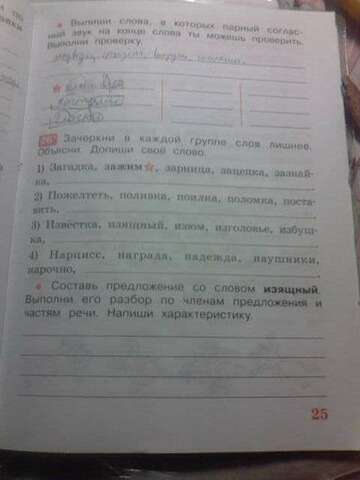 • Выпиши слова, в которых парный соглас-
ный звук на конце слова ты можешь проверить.
Выполни проверку.
26 Зачеркни в каждой группе слов лишнее.
Объясни. Допиши своё слово.
1) Загадка, зажим, зарница, зацепка, зазнай-
ка,
2) Пожелтеть, поливка, поилка, поломка, поста-
вить,
3) Известка, изящный, изюм, изголовье, избуш-
ка,
4) Нарцисс, награда, надежда, наушники,
нарочно,
• Составь предложение со словом изящный.
Выполни его разбор по членам предложения и
частям речи. Напиши характеристику.
25